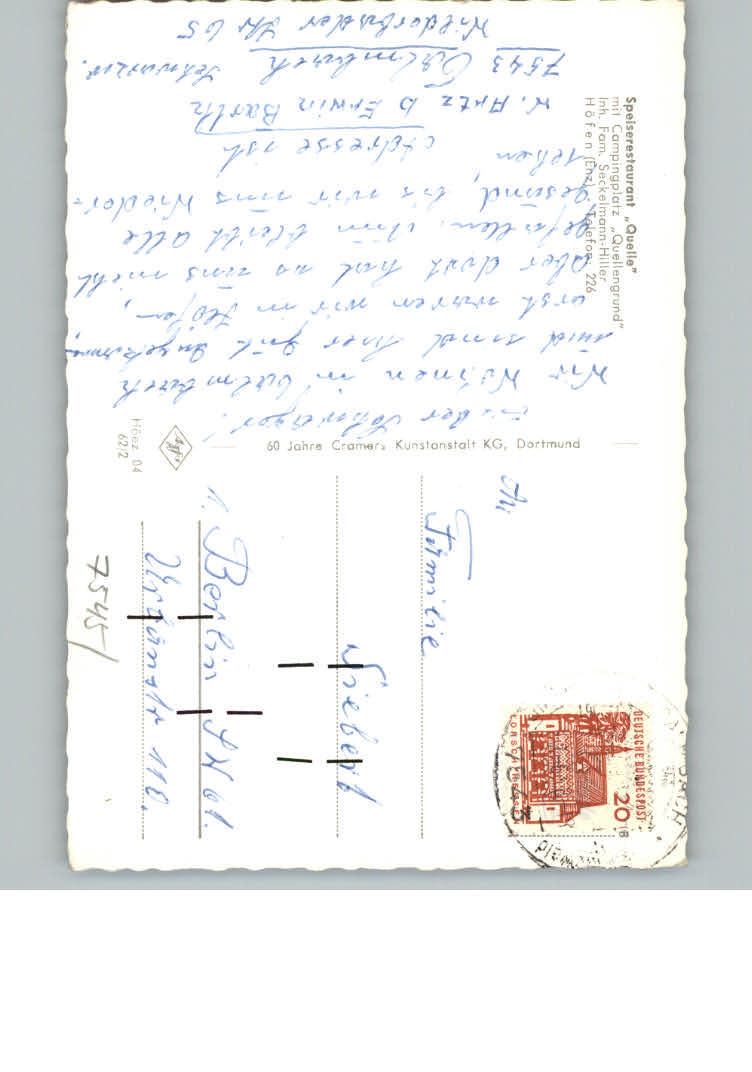 Speiserestaurant „Quelle"
mit Campingplatz „Quellengrund"
Inh. Fam. Seckelmann-Hiller
Höfen (Enz), Telefon 226
Lieber Schwager!
Wir Wohnen in Calmbach
und sind hier gut
erst waren wir in Höfen,
aber dort hat es uns nicht
gefallen. Nun bleibt alle
gesund, bis wir uns Wieder-
sehen
Adresse ist
W. Artz b Erwin Barth
7543 Calmbach Schwarzw.
Wildbader Str 65
60 Jahre Cramers Kunstanstalt KG, Dortmund
Höez 04
62/2
An
Familie
Siebert
1. Berlin SW 61.
Urbanstr 118.
7545/
DEUTSCHE BUNDESPOST
20
LORSCH/HESSEN